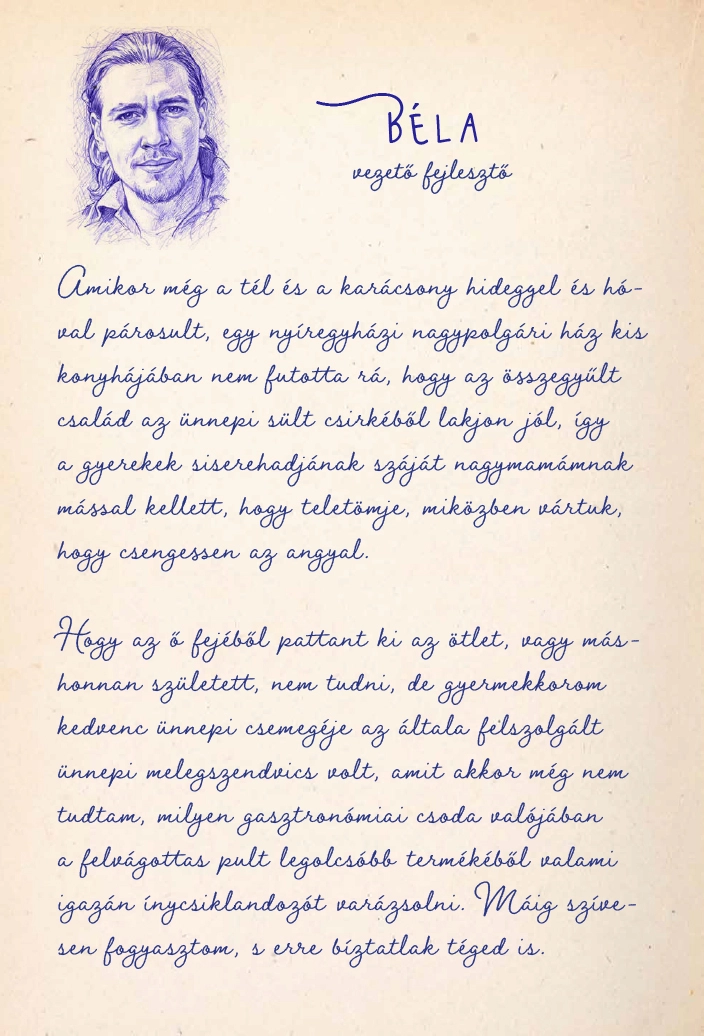 BÉLA
vezető fejlesztő
Amikor még a tél és a karácsony hideggel és hó-
val párosult, egy nyíregyházi nagypolgári ház kis
konyhájában nem futotta rá, hogy az összegyűlt
család az ünnepi sült csirkéből lakjon jól, így
a gyerekek siserehadjának száját nagymamámnak
mással kellett, hogy teletömje, miközben vártuk,
hogy csengessen az angyal.
Hogy az ő fejéből pattant ki az ötlet, vagy más-
honnan született, nem tudni, de gyermekkorom
kedvenc ünnepi csemegéje az általa felszolgált
ünnepi melegszendvics volt, amit akkor még nem
tudtam, milyen gasztronómiai csoda valójában
a felvágottas pult legolcsóbb termékéből valami
igazán ínycsiklandozót varázsolni. Máig szíve-
sen fogyasztom, s erre bíztatlak téged is.